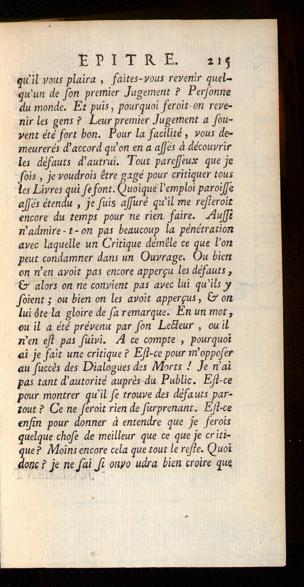 EPITRE. 215
qu'il vous plaira, faites-vous revenir quel-
qu'un de ſon premier Jugement ? Perſonne
du monde. Et puis, pourquoi feroit-on reve-
nir les gens ? Leur premier Jugement a ſou-
vent été fort bon. Pour la facilité, vous de-
meurerés d'accord qu'on en a aſſés à découvrir
les défauts d'autrui. Tout pareſſeux que je
ſois, je voudrois être gagé pour critiquer tous
les Livres qui ſe font. Quoique l'emploi paroiſſe
aſſés étendu, je ſuis aſſuré qu'il me reſteroit
encore du temps pour ne rien faire. Auſſi
n'admire-t-on pas beaucoup la pénétration
avec laquelle un Critique démêle ce que l'on
peut condamner dans un Ouvrage. Ou bien
on n'en avoit pas encore apperçu les défauts,
& alors on ne convient pas avec lui qu'ils y
ſoient ; ou bien on les avoit apperçus, & on
lui ôte la gloire de ſa remarque. En un mot,
ou il a été prévenu par ſon Lecteur, ou il
n'en eſt pas ſuivi. A ce compte, pourquoi
ai je fait une critique ? Eſt-ce pour m'oppoſer
au ſuccès des Dialogues des Morts ! Je n'ai
pas tant d'autorité auprès du Public. Eſt-ce
pour montrer qu'il ſe trouve des défauts par-
tout ? Ce ne ſeroit rien de ſurprenant. Eſt-ce
enfin pour donner à entendre que je ferois
quelque choſe de meilleur que ce que je criti-
que ? Moins encore cela que tout le reſte. Quoi
donc ? je ne ſai ſi onvo udra bien croire que